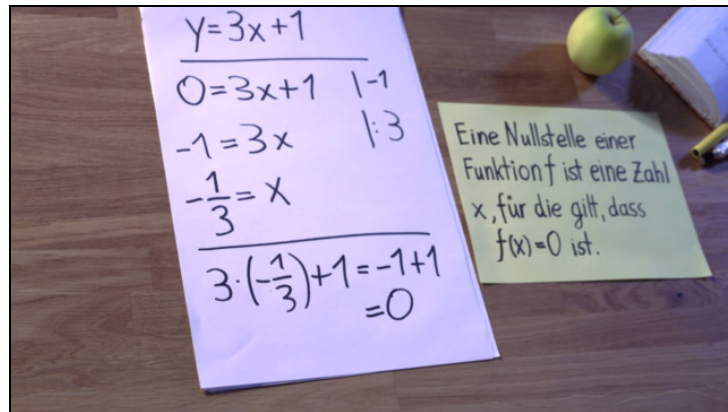 y=3x+1
0=3x+1 |-1
-1=3x |:3
-1/3=x
3·(-1/3)+1=-1+1
=0
Eine Nullstelle einer
Funktion f ist eine Zahl
x, für die gilt, dass
f(x)=0 ist.